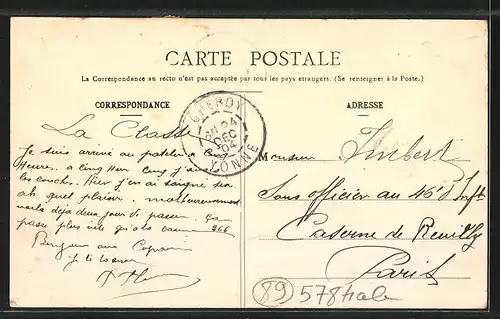 CARTE POSTALE
La Correspondance au recto n'est pas acceptée par tous les pays étrangers. (Se renseigner à la Poste.)
CORRESPONDANCE
ADRESSE
CHEROY
24
DEC
04
YONNE
La Classe
Je suis arrivé au
heures. a cinq heures
les couches. Hier j'en ai saigné
ah quel plaisir. malheureusement
voila déja deux jours de passer.
passe plus vite qu'a la 266
Bonjour aux Copains
Je te serre
Monsieur Imbert
Sous officier au 46e d'Inft
Caserne de Reuilly
Paris
89 578